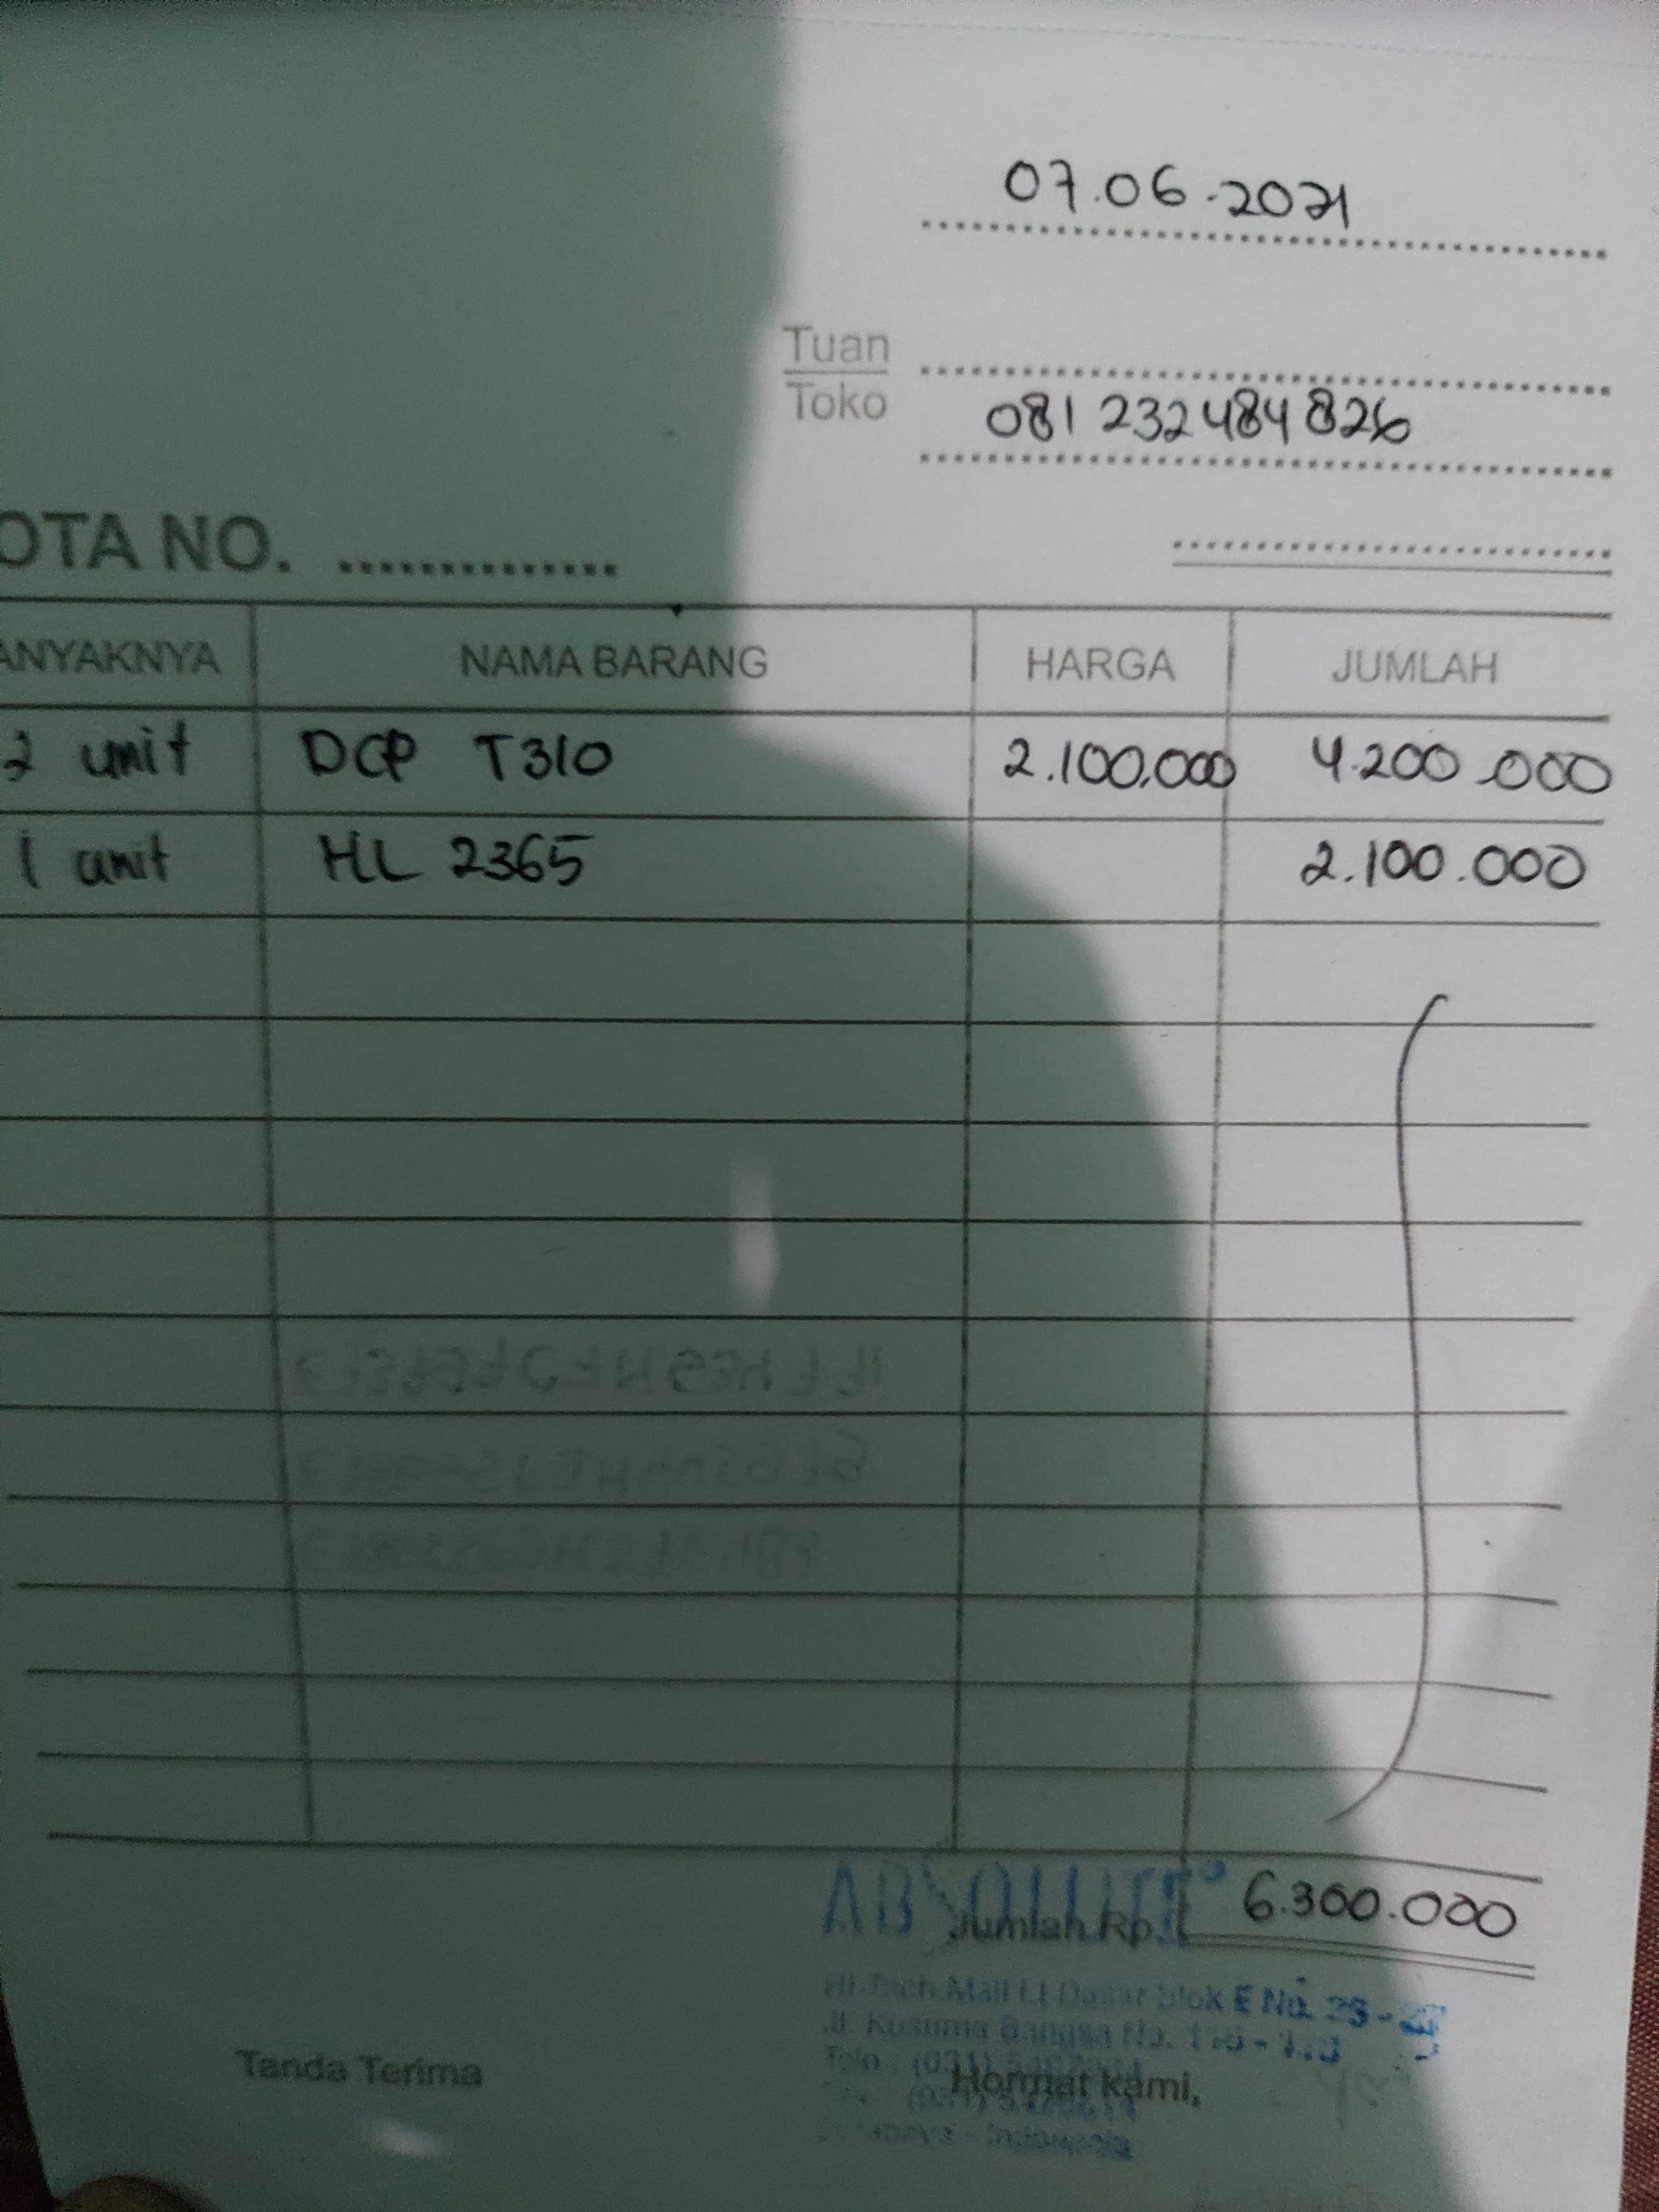 07.06.2021
Tuan
Toko
081 232 484 826
OTA NO. ..............
ANYAKNYA NAMA BARANG HARGA JUMLAH
2 unit DCP T310 2.100.000 4.200.000
1 unit HL 2365 2.100.000
ABSOLUTE
Jumlah Rp. 6.300.000
Hi-Tech Mall Lt Dasar Blok E No.
Jl. Kusuma Bangsa No.
Tanda Terima Hormat kami,
- Indonesia